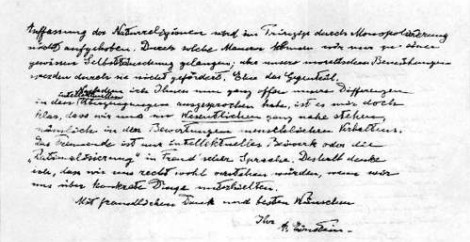 Auffassung der Naturreligionen wird im Prinzip durch Monopolisierung
nicht aufgehoben. Durch solche Mauern können wir nur zu einer
gewissen Selbsttäuschung gelangen; aber unsere moralischen Bemühungen
werden durch sie nicht gefördert. Eher das Gegenteil.
Nachdem ich Ihnen nun ganz offen unsere Differenzen
in den intellektuellen Überzeugungen ausgesprochen habe, ist es mir doch
klar, dass wir uns im Wesentlichen ganz nahe stehen,
nämlich in den Bewertungen menschlichen Verhaltens.
Das Trennende ist nur intellektuelles Beiwerk oder die
"Rationalisierung" in Freud'scher Sprache. Deshalb denke
ich, dass wir uns recht wohl verstehen würden, wenn wir
uns über konkrete Dinge unterhielten.
Mit freundlichem Dank und besten Wünschen
Ihr A. Einstein.